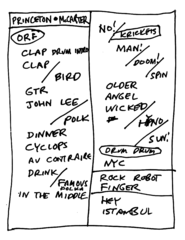 PRINCETON • McCARTER
ORF
CLAP DRUM INTRO
CLAP/
BIRD
GTR
JOHN LEE
/POLK
DINNER
CYCLOPS
AU CONTRAIRE
DRINK/
FAMOUS
POLKA
IN THE MIDDLE
NO!/
KRICKETS
MAN!/
DOOM!/
SPIN
OLDER
ANGEL
WICKED/
HIND/
SUN!
DRUM DRUM
NYC
ROCK ROBOT
FINGER
HEY
ISTANBUL